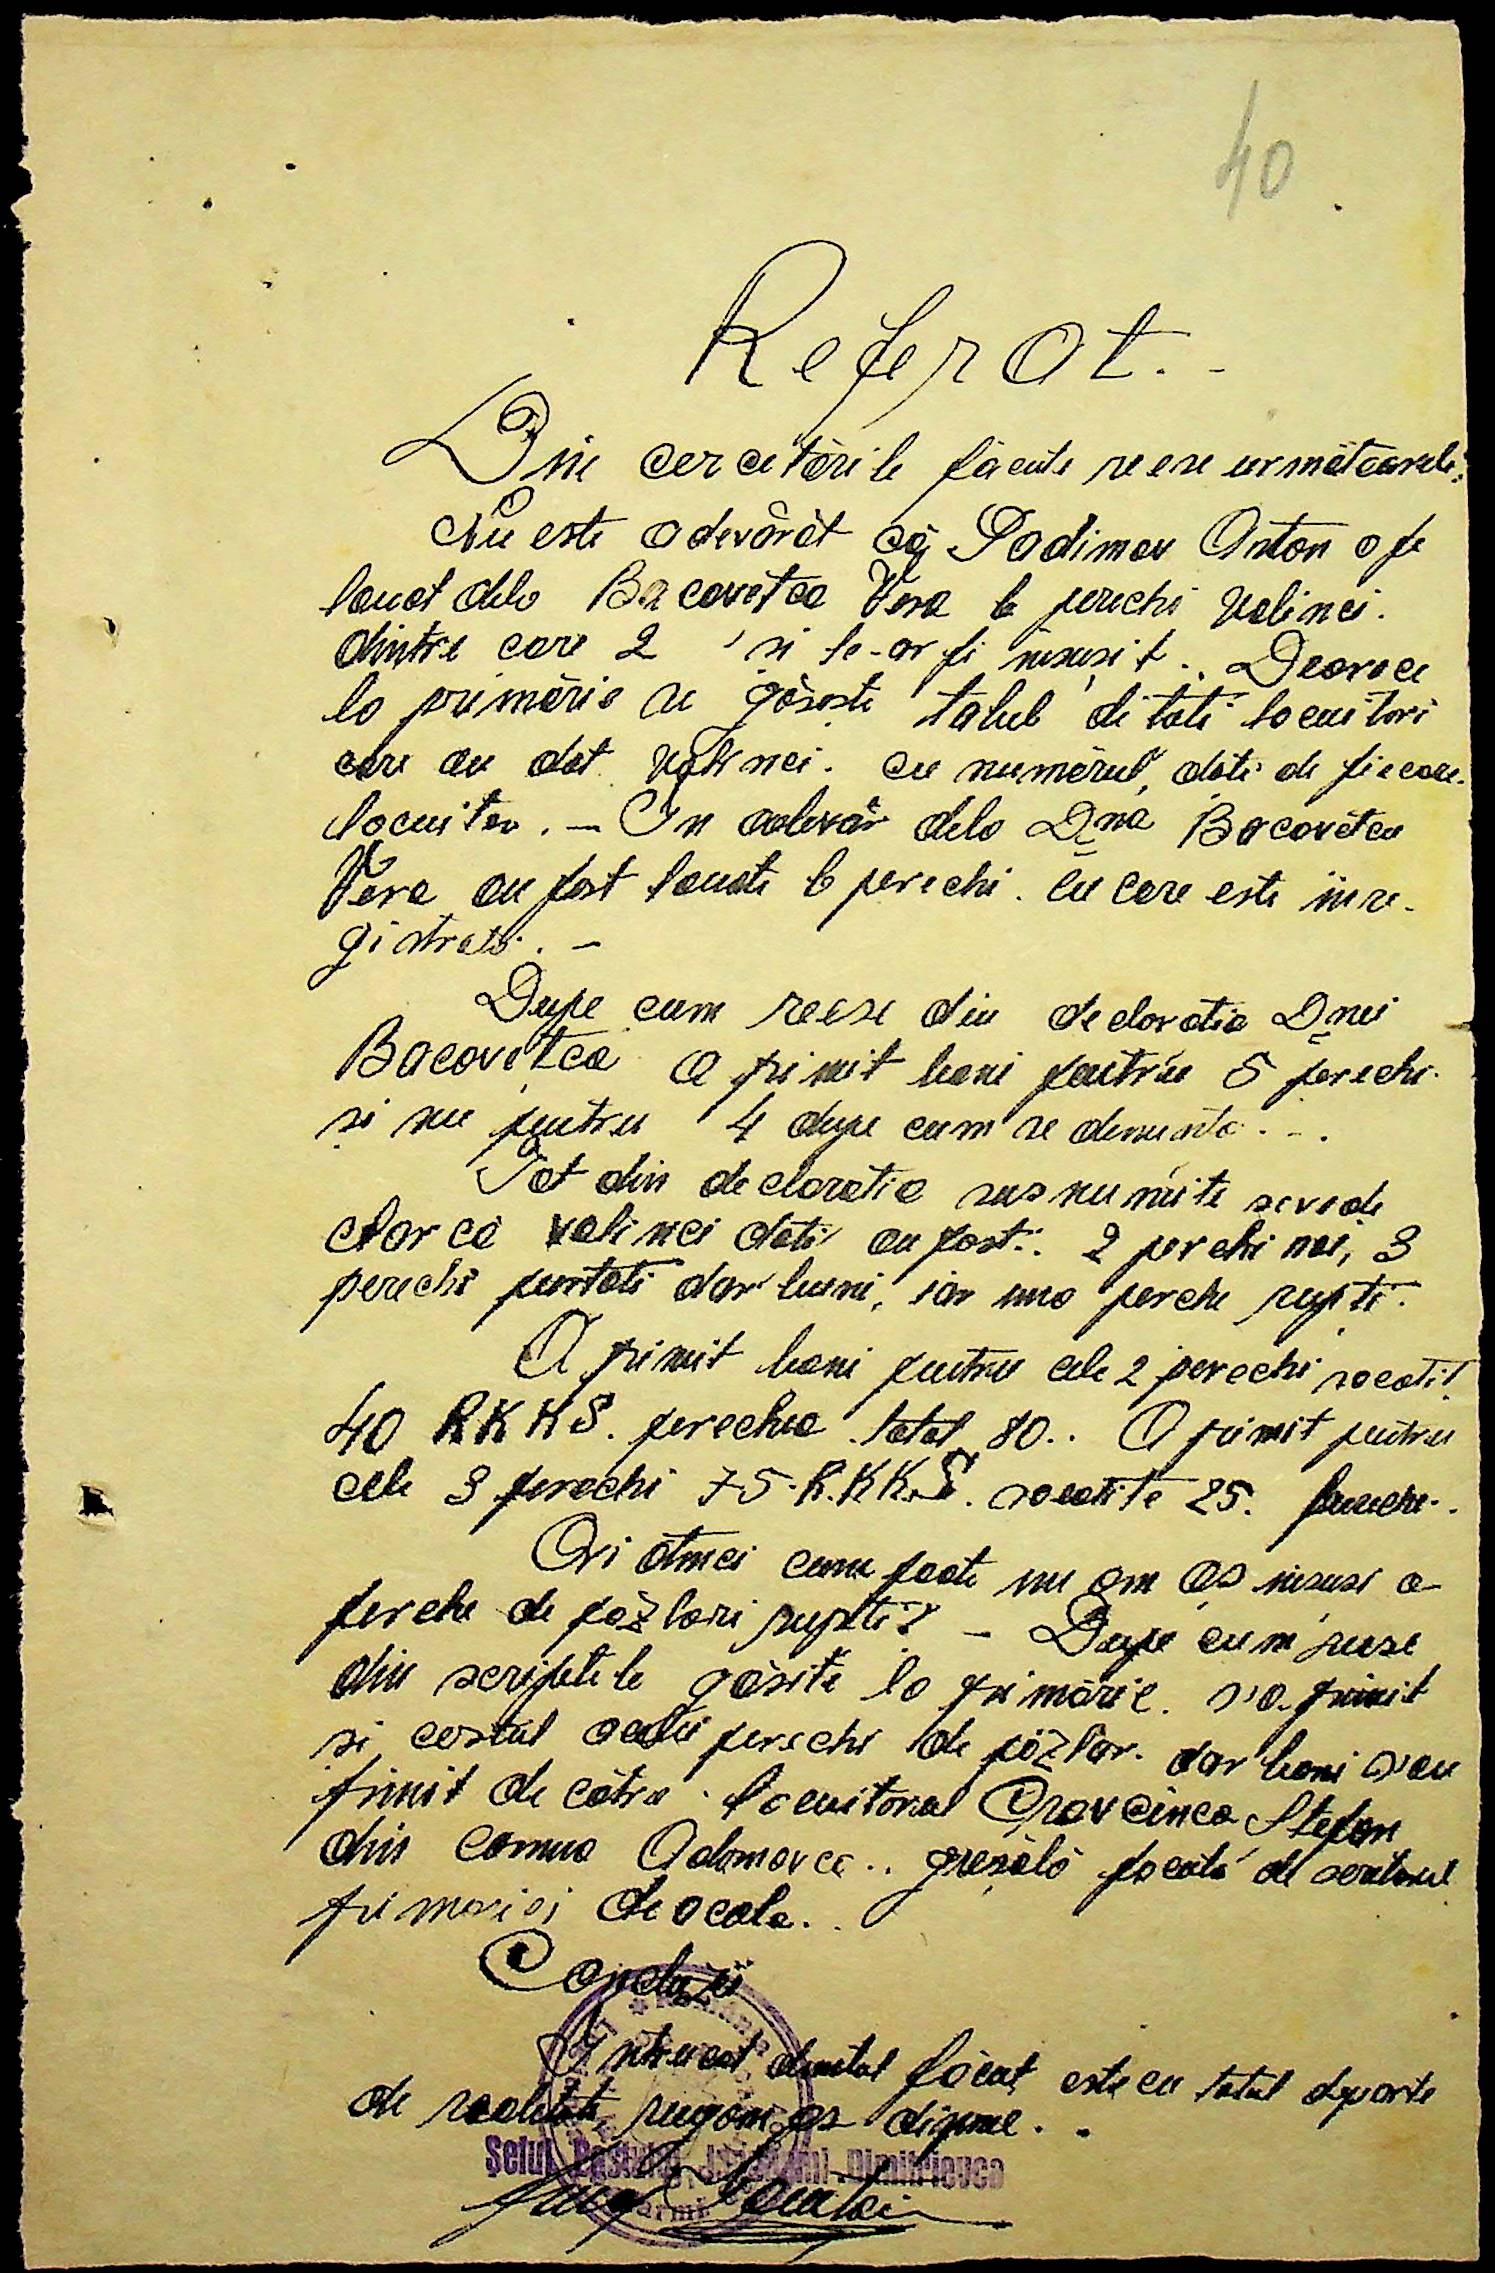 40
Referat. -
Din cercetările făcute reese următoarele:
Nu este adevărat că Padimov Anton a fi
lauat dela Bacovetca Vera 6 perechi valinci.
dintre care 2 și le-ar fi însușit. Deoarece
la primărie se găsește talul de toți locuitori
care au dat valinci. cu numărul, dați de fiecare
locuitor. - În adevăr dela Dna Bacovetca
Vera au fost lauate 6 perechi. cu care este înre-
gistrată. -
Dupe cum reese din declarația Dnei
Bacovetca a primit bani pentru 5 perechi
și nu pentru 4 dupe cum se denunță. -.
Tot din declarația susnumite se vede
clar că valinci dați au fost: 2 perechi noi, 3
perechi purtați dar buni, iar una pereche rupți.
A primit bani pentru cele 2 perechi socotit
40 RKKS. perechea total 80.. A primit pentru
cele 3 perechi 75-R.KK.S. socotite 25. perechea.
Ori atunci cum poate un om să însușească o
pereche de pâzlari rupți? - Dupe cum reese
din scriptele găsite la primărie. s'a primit
și costul acelei perechi de pâzlar. dar bani s'au
primit de către locuitorul Cravcinco Ștefan
din comuna Adamovca.. greșală făcută de
primariei de acolo.
Concluzii
Întrucât făcut este cu totul departe
de realitate, rugăm a dispune. -
Șeful Postului Jandarmi Dimitrievca